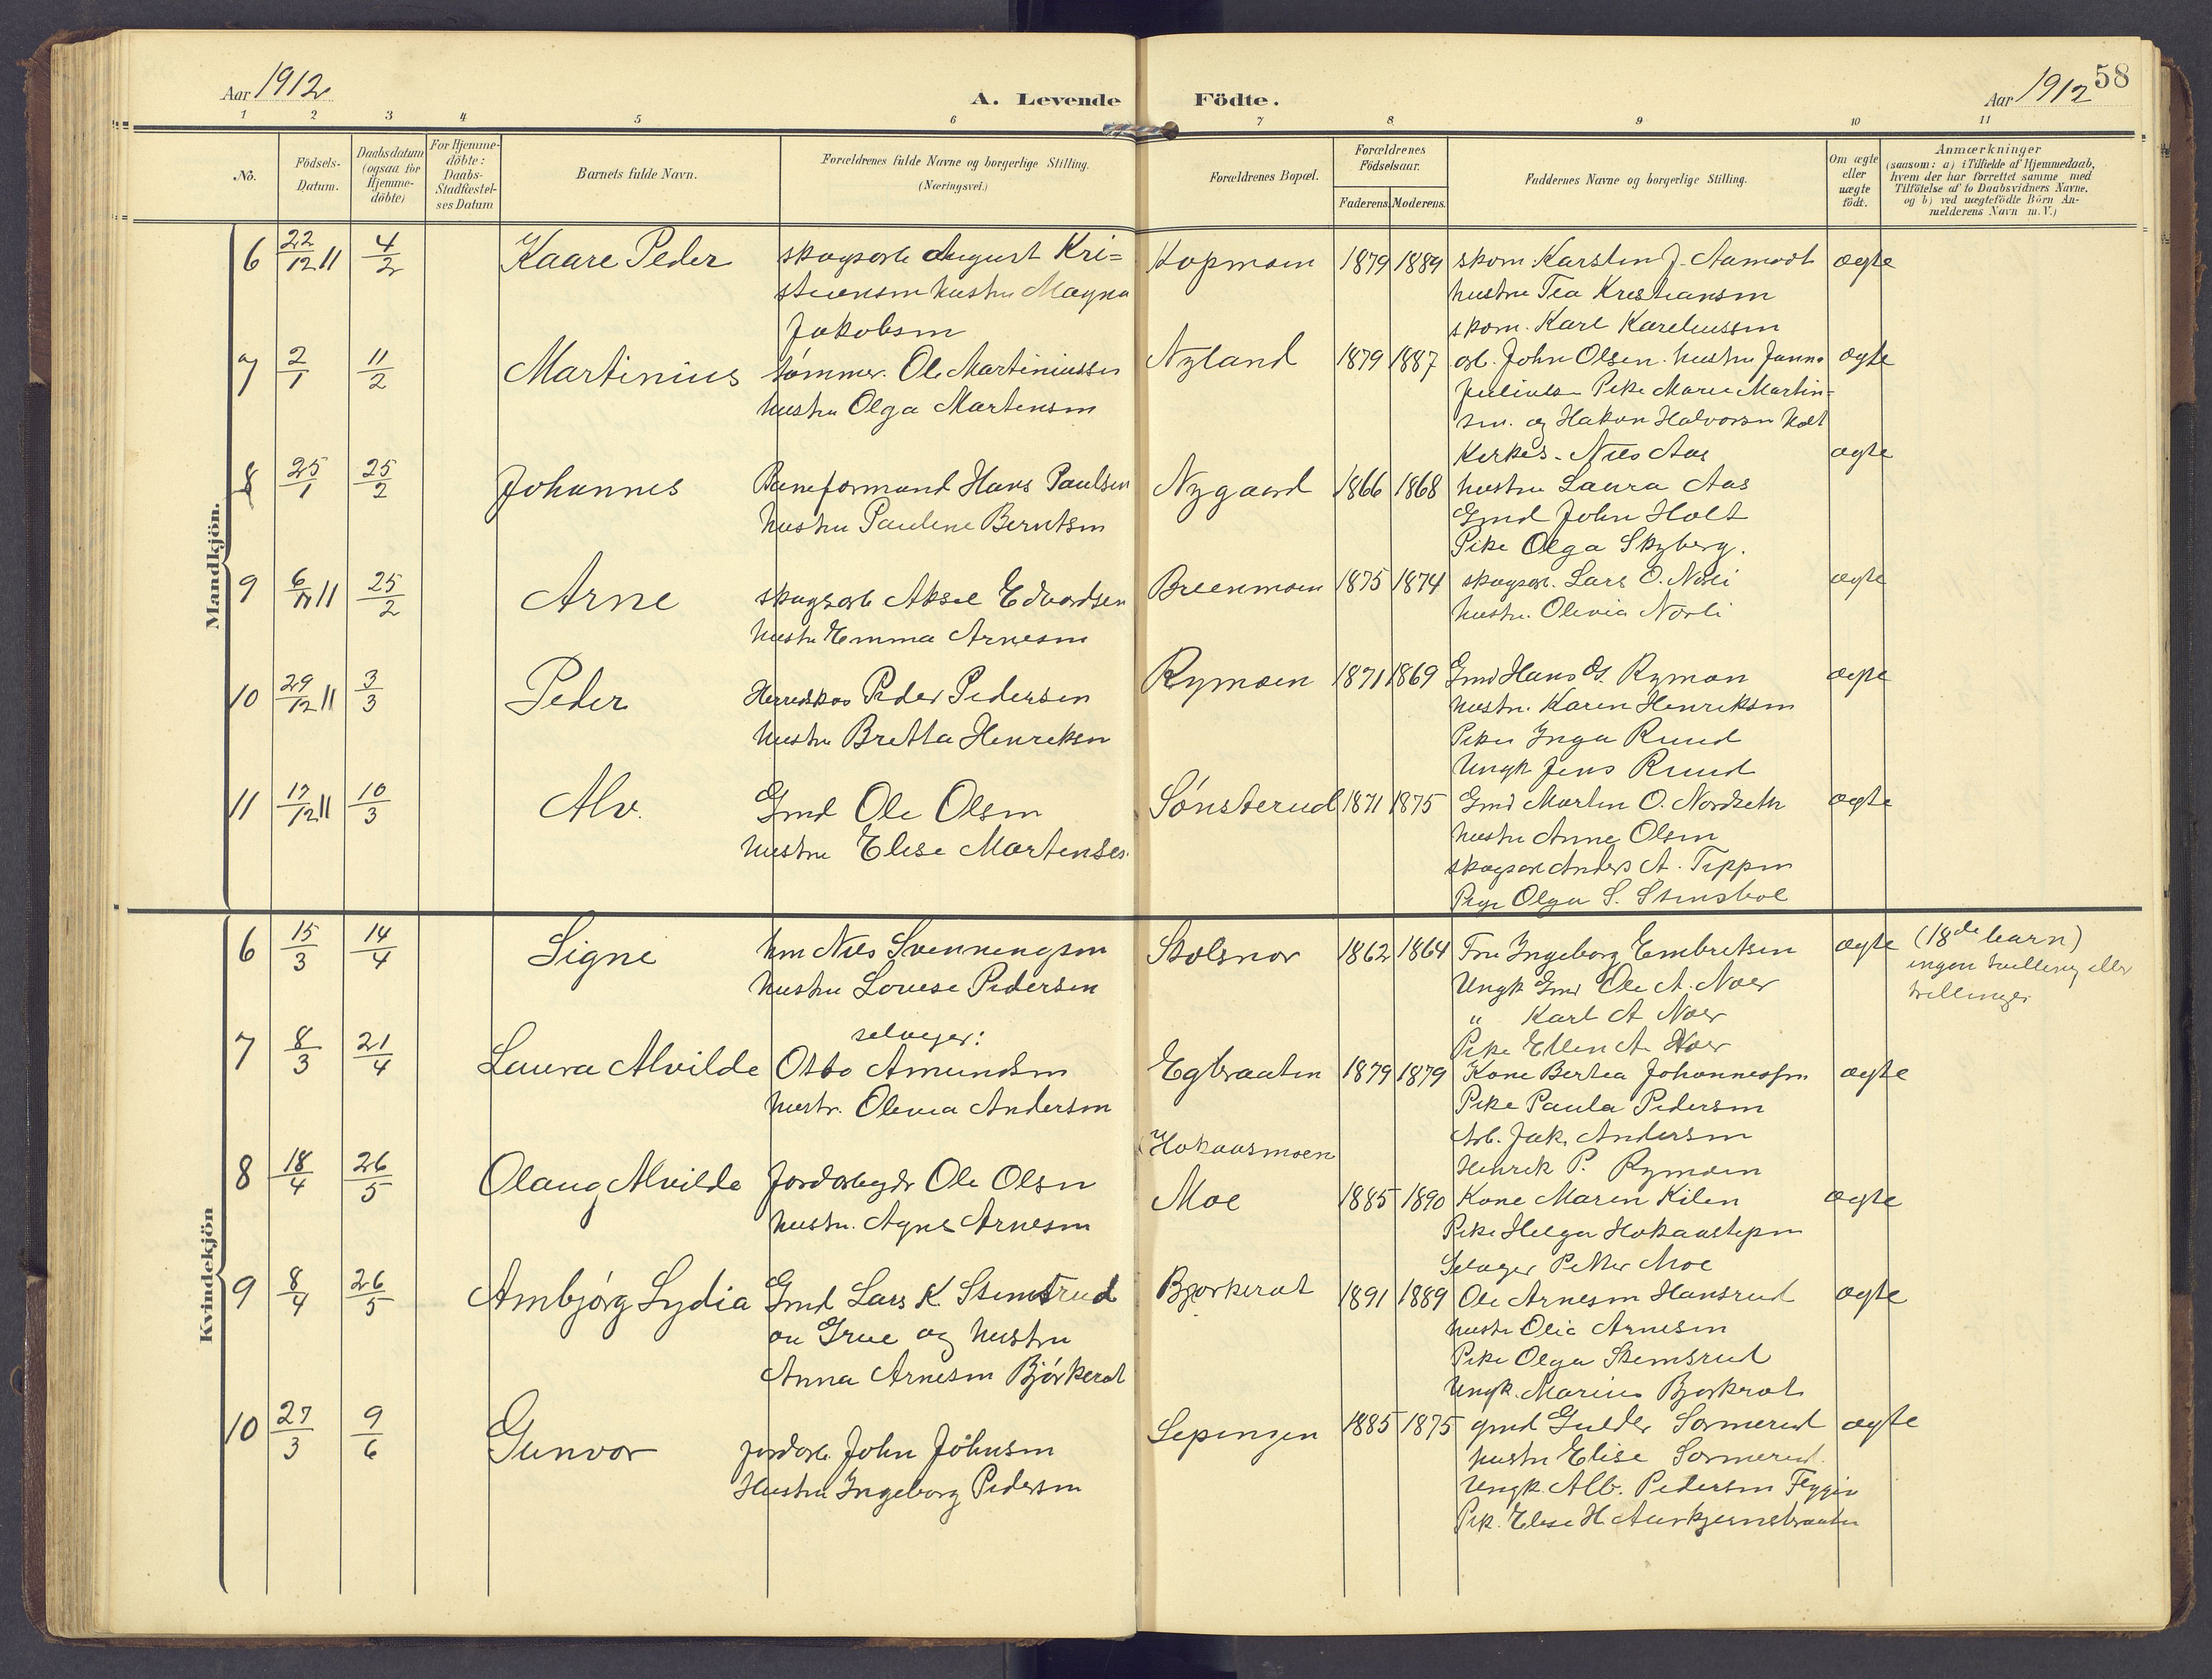 Aar 1912
A. Levende Födte.
Aar 1912
58
1 2 3 4 5 6 7 8 9 10 11
No.
Födsels-Datum.
Daabsdatum (ogsaa for Hjemme-döbte)
For Hjemme-döbte: Daabs-Stadfæstel-ses Datum
Barnets fulde Navn.
Forældrenes fulde Navne og borgerlige Stilling.
(Næringsvei.)
Forældrenes Bopæl.
Forældrenes Födselsaar.
Faderens. Moderens.
Faddernes Navne og borgerlige Stilling.
Om ægte eller uægte födt.
Anmærkninger
(saasom: a) i Tilfælde af Hjemmedaab,
hvem der har forrettet samme med
Tilföielse af to Daabsvidners Navne.
og b) ved uægtefödte Börn An-
melderens Navn m.V.)
Mandkjön.
6 22/12 11 4/2 Kaare Peder skogsarb August Kri= Kopmoen 1879 1889 skom Karsten J. Aamodt ægte
stiansen hustru Magna hustru Tea Kristiansen
Jakobsen skom. Karl Kareliussen
7 2/1 11/2 Martinius tømmer. Ole Martiniussen Nyland 1879 1887 arb. John Olsen. hustru ægte
hustru Olga Martensen Pike Marie Martin=
sen. og Hakon Halvorsen Holt
8 25/1 25/2 Johannes Baneformand Hans Paulsen Nygaard 1866 1868 Kirkes. Nils Aas ægte
hustru Pauline Berntsen hustru Laura Aas
Gmd John Holt
Pike Olga Skyberg.
9 6/11 11 25/2 Arne skogsarb Aksel Edvardsen Breenmoen 1875 1874 skogsarb. Lars O. Norli ægte
hustr Emma Arnesen hustr. Olivia Norli
10 29/12 11 3/3 Peder Herredskas Peder Pedersen Rymoen 1871 1869 Gmd Hans Rymoen ægte
hustru Bretta Henriksen hustr. Karen Henriksen
Pike Inga Ruud
Ungk Jens Ruud
11 17/12 11 10/3 Alv. Gmd Ole Olsen Sønsterud 1871 1875 Gmd Martin O. Nordseth ægte
hustru Elise Martensen. hustru Anne Olsen
skogsarb Anders A. Tippen
Pige Olga S. Stensbøl
Kvindekjön
6 15/3 14/4 Signe hm Nils Svenningsen Stolsnor 1862 1864 Fru Ingeborg Embretsen ægte (18de barn)
hustru Lovise Pedersen Ungk Gmd Ole A. Noer ingen tvilling eller
" Karl A Noer trillinger
Pike Ellen A. Noer
7 8/3 21/4 Laura Alvilde selveger:
Otto Amundsen Egbraaten 1879 1879 Kone Bertea Johannessen ægte
hustr. Olivia Andersen Pike Paula Pedersen
Arb. Jak. Andersen
Henrik P. Rymoen
8 18/4 26/5 Olaug Alvilde Jordarbeyder Ole Olsen Hokaasmoen
Moe 1885 1890 Kone Maren Kilen ægte
hustr. Agnes Arnesen Pike Helga
Selveger Petter Moe
9 8/4 26/5 Ambjørg Lydia Gmd Lars K. Stemsrud Bjorkerot 1891 1889 Ole Arnesen Hansrud ægte
av Grue og hustru hustr Olia Arnesen
Anna Arnesen Bjørkerot Pike Olga Stemsrud
Ungk. Marius Bjorkrot
10 27/3 9/6 Gunvor jordarb. John Johnsen Sepingen 1885 1875 gmd Gulder Sormerud ægte
Hustru Ingeborg Pedersen hustru Elise Sormerud.
Ungk. Alb. Pedersen
Pik. Elise H.